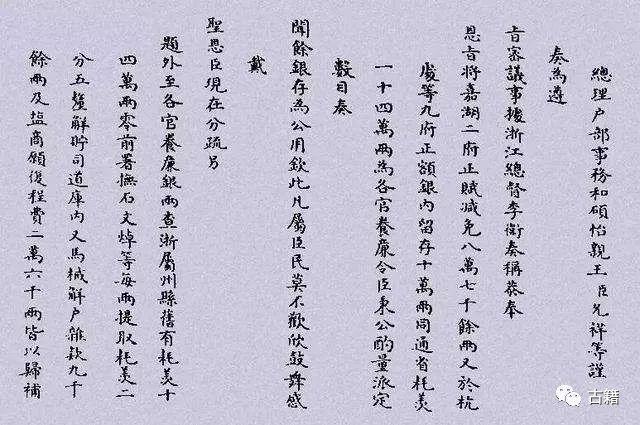 總理户部事務和碩怡親王臣允祥等謹
奏為遵
旨審議事據浙江總督李衛奏稱恭奉
恩旨將嘉湖二府正賦減免八萬七千餘兩又於杭
處等九府正額銀内留存十萬兩同通省耗羙
一十四萬兩為各官養廉令臣秉公酌量派定
數目奏
聞餘銀存為公用欽此凡屬臣民莫不歡欣鼓舞感
戴
聖恩臣現在分疏另
題外至各官養廉銀兩查浙屬州縣舊有耗羙十
四萬兩零前署撫石文焯等每兩提取耗羙二
分五釐解貯司道庫内又馬械解户雜欵九千
餘兩及塩商願復程費二萬六千兩皆以歸補
古籍